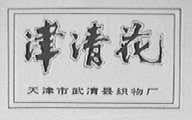 津清花
天津市武清县织物厂